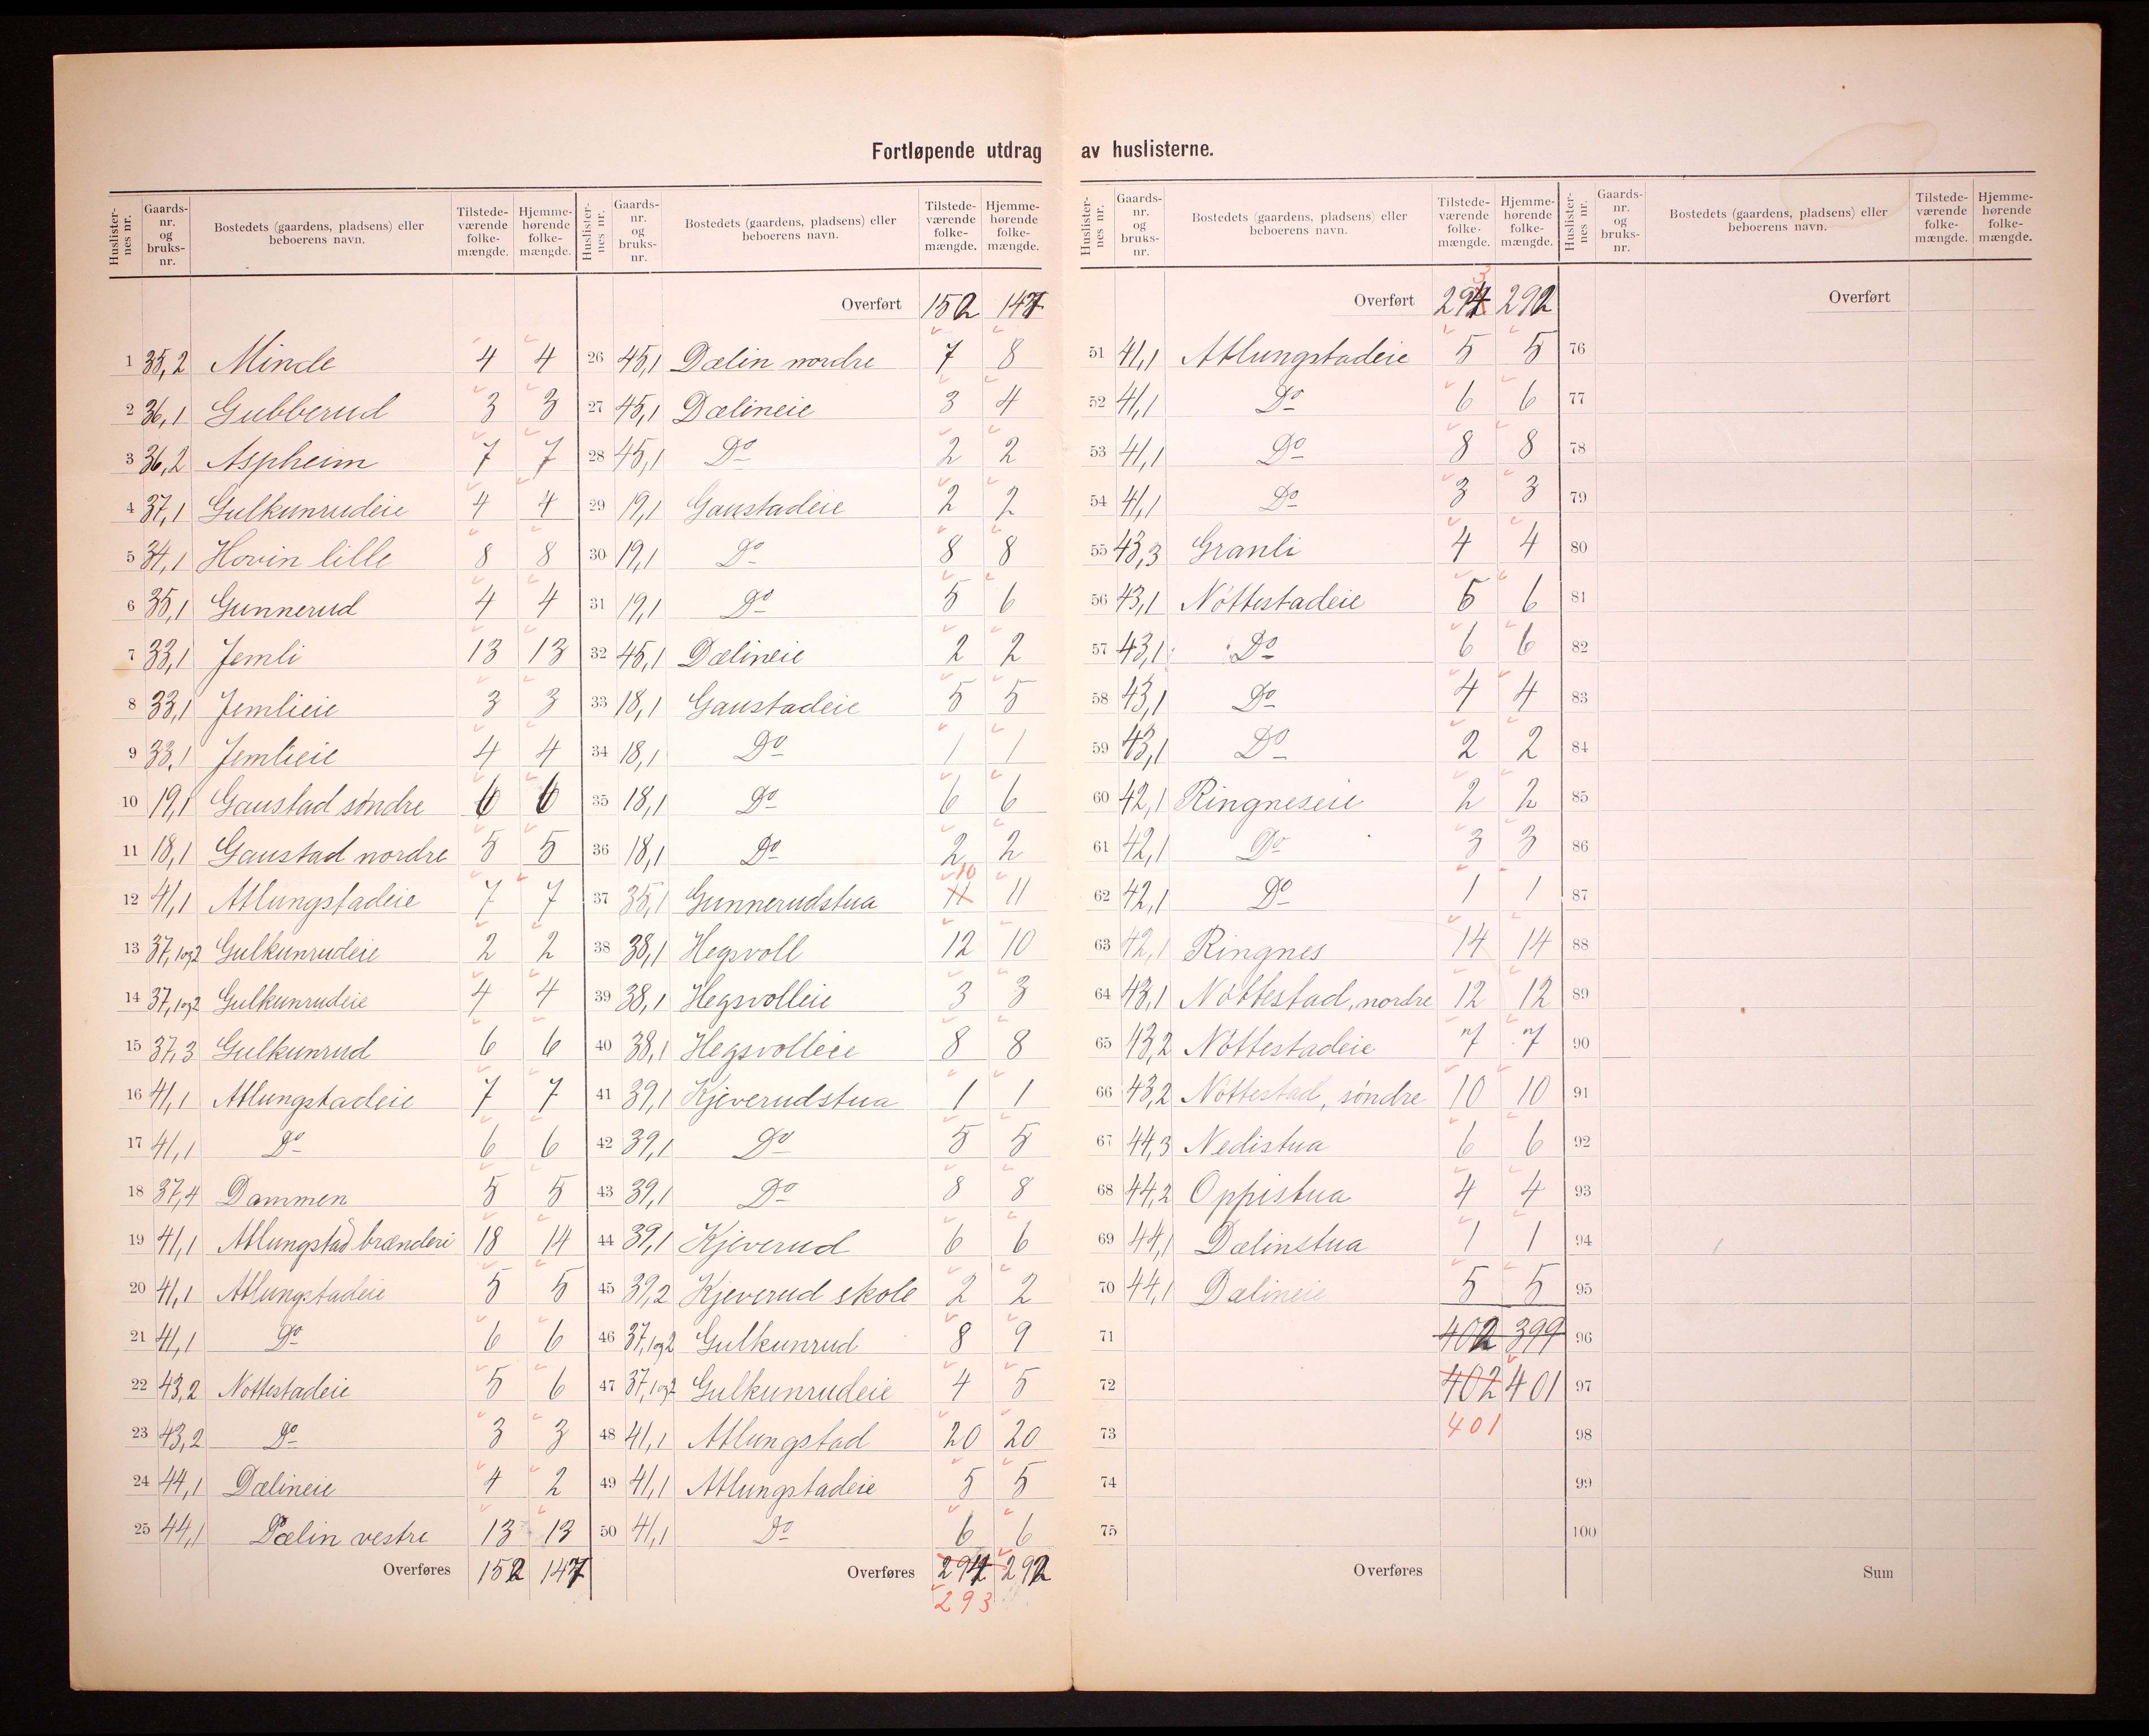 Fortløpende utdrag av huslisterne.
Huslister-nes nr. Gaards-nr. og bruks-nr. Bostedets (gaardens, pladsens) eller beboerens navn. Tilstede-værende folke-mængde. Hjemme-hørende folke-mængde.
1 35,2 Minde 4 4
2 36,1 Gubberud 3 3
3 36,2 Aspheim 7 7
4 37,1 Gulkunrudeie 4 4
5 34,1 Hovin lille 8 8
6 35,1 Gunnerud 4 4
7 33,1 Jemli 13 13
8 33,1 Jemlieie 3 3
9 33,1 Jemlieie 4 4
10 19,1 Gaustad søndre 6 6
11 18,1 Gaustad nordre 5 5
12 41,1 Atlungstadeie 7 7
13 37,1og2 Gulkunrudeie 2 2
14 37,1og2 Gulkunrudeie 4 4
15 37,3 Gulkunrud 6 6
16 41,1 Atlungstadeie 7 7
17 41,1 Do 6 6
18 37,4 Dammen 5 5
19 41,1 Atlungstad brænderi 18 14
20 41,1 Atlungstadeie 5 5
21 41,1 Do 6 6
22 43,2 Nottestadeie 5 6
23 43,2 Do 3 3
24 44,1 Dælineie 4 2
25 44,1 Dælin vestre 13 13
Overføres 152 147
Huslister-nes nr. Gaards-nr. og bruks-nr. Bostedets (gaardens, pladsens) eller beboerens navn. Tilstede-værende folke-mængde. Hjemme-hørende folke-mængde.
Overført 152 147
26 45,1 Dælin nordre 7 8
27 45,1 Dælineie 3 4
28 45,1 Do 2 2
29 19,1 Gaustadeie 2 2
30 19,1 Do 8 8
31 19,1 Do 5 6
32 45,1 Dælineie 2 2
33 18,1 Gaustadeie 5 5
34 18,1 Do 1 1
35 18,1 Do 6 6
36 18,1 Do 2 2
10
37 35,1 Gunnerudstua 11 11
38 38,1 Hegsvoll 12 10
39 38,1 Hegsvolleie 3 3
40 38,1 Hegsvolleie 8 8
41 39,1 Kjeverudstua 1 1
42 39,1 Do 5 5
43 39,1 Do 8 8
44 39,1 Kjeverud 6 6
45 39,2 Kjeverud skole 2 2
46 37,1og2 Gulkunrud 8 9
47 37,1og2 Gulkunrudeie 4 5
48 41,1 Atlungstad 20 20
49 41,1 Atlungstadeie 5 5
50 41,1 Do 6 6
Overføres 294 292
293
Huslister-nes nr. Gaards-nr. og bruks-nr. Bostedets (gaardens, pladsens) eller beboerens navn. Tilstede-værende folke-mængde. Hjemme-hørende folke-mængde.
3
Overført 294 292
51 41,1 Atlungstadeie 5 5
52 41,1 Do 6 6
53 41,1 Do 8 8
54 41,1 Do 3 3
55 43,3 Granli 4 4
56 43,1 Nøttestadeie 5 6
57 43,1 Do 6 6
58 43,1 Do 4 4
59 43,1 Do 2 2
60 42,1 Ringneseie 2 2
61 42,1 Do 3 3
62 42,1 Do 1 1
63 42,1 Ringnes 14 14
64 43,1 Nøttestad, nordre 12 12
65 43,2 Nøttestadeie 7 7
66 43,2 Nøttestad, søndre 10 10
67 44,3 Nedistua 6 6
68 44,2 Oppistua 4 4
69 44,1 Dælinstua 1 1
70 44,1 Dælineie 5 5
71 402 399
72 402 401
73 401
74
75
Overføres
Huslister-nes nr. Gaards-nr. og bruks-nr. Bostedets (gaardens, pladsens) eller beboerens navn. Tilstede-værende folke-mængde. Hjemme-hørende folke-mængde.
Overført
76
77
78
79
80
81
82
83
84
85
86
87
88
89
90
91
92
93
94
95
96
97
98
99
100
Sum